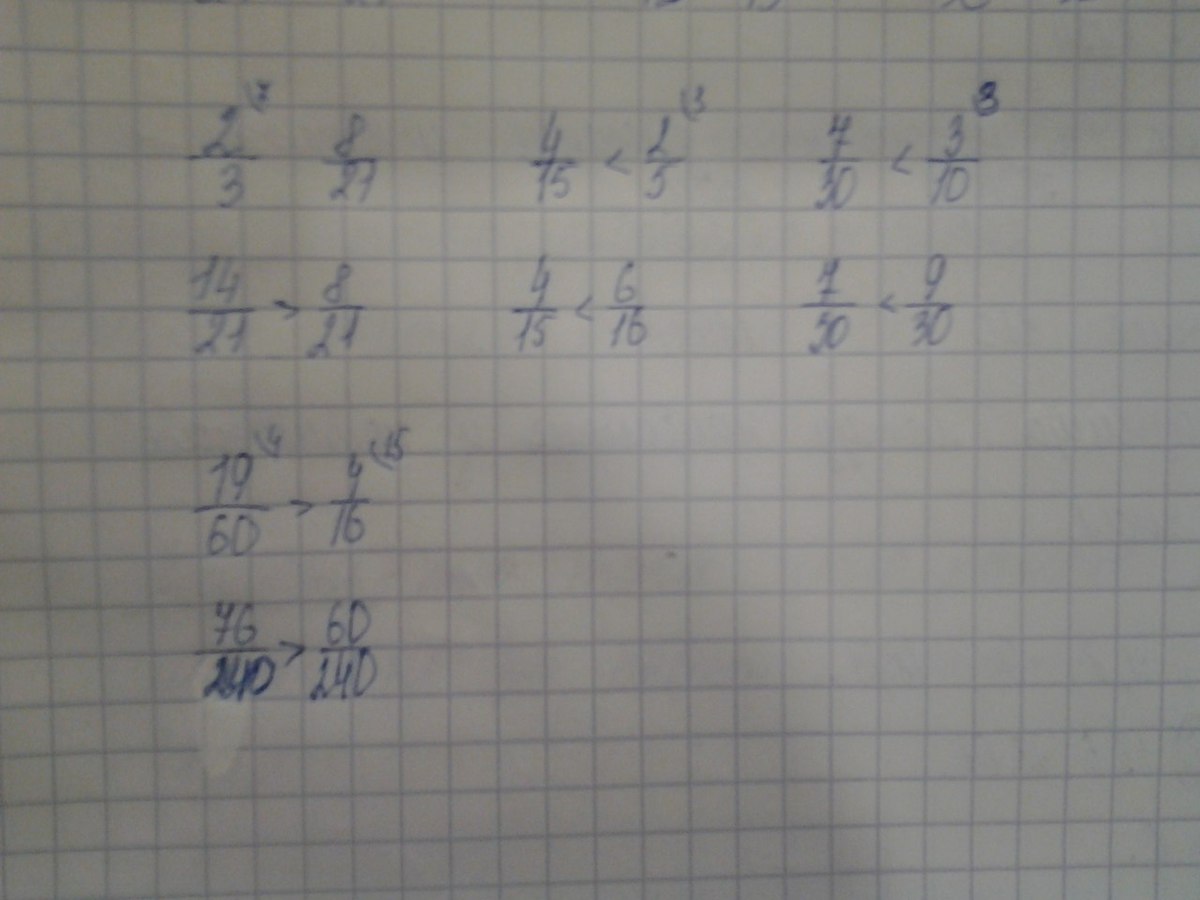 2/3 \7 8/21 4/15 < 2/5 \3 7/30 < 3/10 \3
14/21 > 8/21 4/15 < 6/16 7/30 < 9/30
19/60 \4 > 4/16 \15
76/240 > 60/240